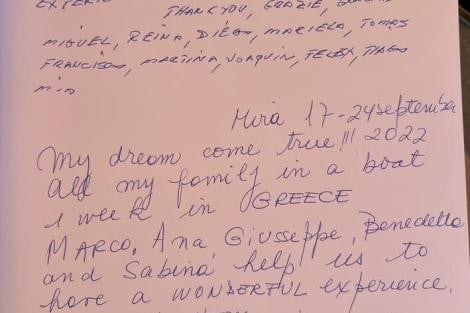 THANK YOU, GRAZIE,
MIGUEL, REINA, DIEGO, MARIELA, TOMAS
FRANCISCO, MARTINA, JOAQUIN, FELIX, TIAGO
MIA
Mirà 17-24 september
My dream come true!!! 2022
all my family in a boat
1 week in GREECE
MARCO, Ana, Giusseppe, Benedetta
and Sabina, help us to
have a WONDERFUL experience.